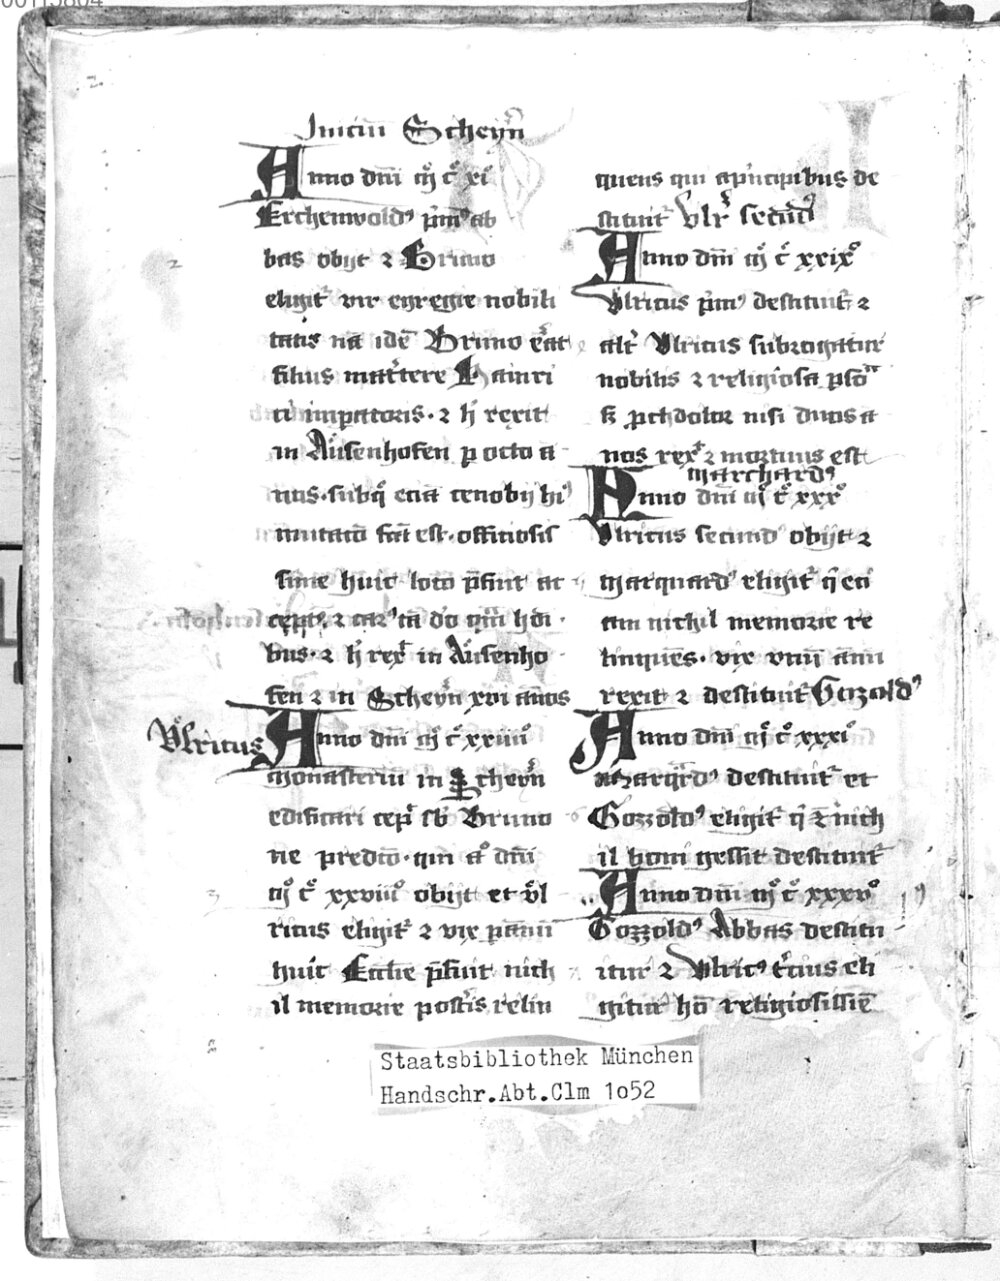 Iniciū Scheyrn
Anno dm̄ mͦ cͦ xi
Erchenwoldꝰ pͥmꝰ ab
bas obijt ⁊ Bruno
eligitᷣ vir egregie nobili
tatis nā idē Bruno eᷣat
filius matᷣtere Hainri
ci impatoris · ⁊ hͥ rexit
in Aͧsenhofen p octo ā
nos · subqͥ eciā cenobij hiꝰ
mutatō fc̄a est · officiosis
sime huic loco p̄fuit ac
ceptꝰ ⁊ carꝰ tā do qm̄ hōi
bus · ⁊ hͥ rexᷣ in Aͧsenho
fen ⁊ in Scheyrn xvi annos
Vͦlricus Anno dm̄ mͦ cͦ xxiiiiͦ
Monasteriū in Scheyrn
edificari cepᷣ sb̄ Bruno
ne predcō · qui aͦ dm̄
mͦ cͦ xxviiiͦ obijt et vͦl
ricus eligitᷣ ⁊ vix p annū
huic Ecclīe p̄fuit nich
il memorie postᷣis relin
quens qui apͥncipibus de
stituitᷣ Vlrᷣ secūdꝰ
Anno dm̄ mͦ cͦ xxixͦ
Vlricus pͥmꝰ destituitᷣ ⁊
altᷣ Vlricus subrogatur
nobilis ⁊ religiosa psōa
sꝫ prchdolor nisi duos a
nos rexᷣ ⁊ mortuus est
Marchardꝰ
Anno dm̄ mͦ cͦ xxxͦ
Vlricus secundꝰ obijt ⁊
Marquardꝰ eligitᷣ qͥ eci
am nichil memorie re
linquēs · vix vnū annū
rexit ⁊ destituitᷣ Gozoldꝰ
Anno dm̄ mͦ cͦ xxxiͦ
Marqᷓrdꝰ destituitᷣ et
Gozzoldꝰ eligitᷣ qͥ ⁊ nich
il boni gessit destituitᷣ
Anno dm̄ mͦ cͦ xxxvͦ
Gozzoldꝰ Abbas destitu
itur ⁊ Vlricꝰ tᷣcius eli
gitur hō religiosissīe
Staatsbibliothek München
Handschr.Abt.Clm 1o52